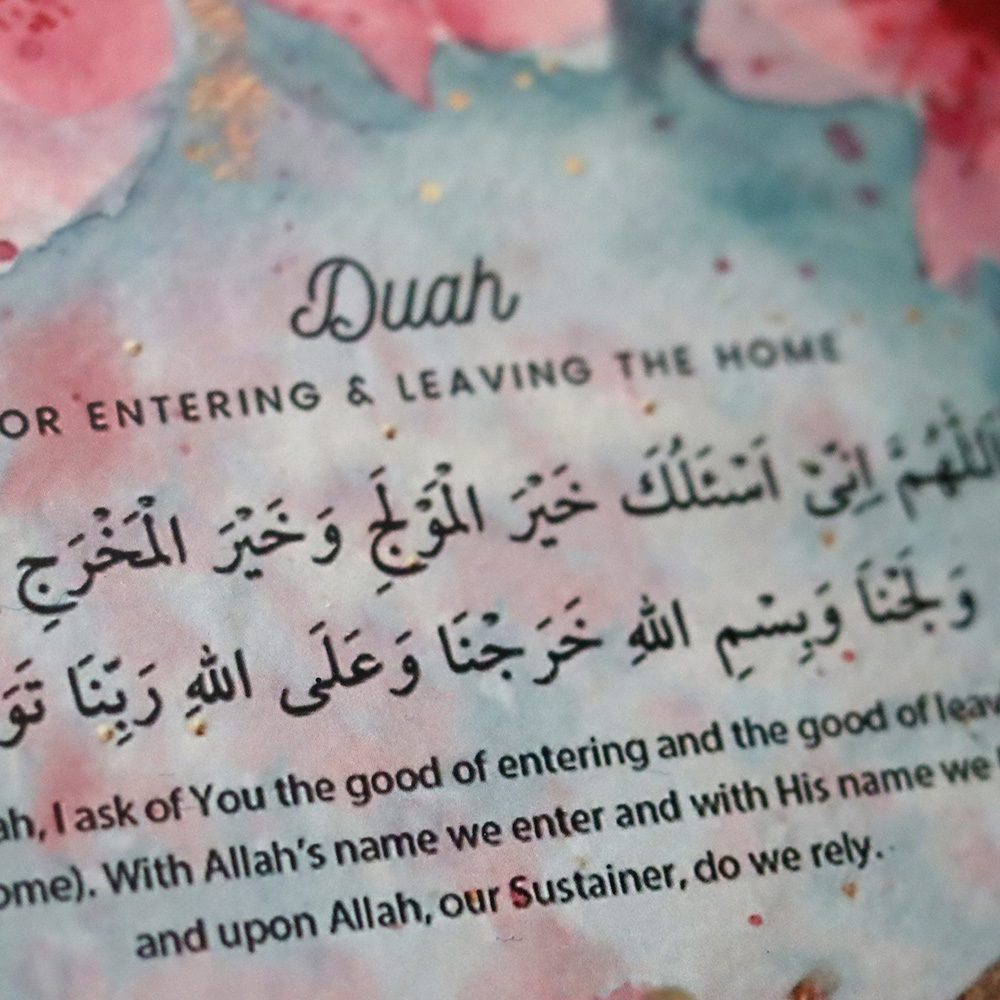 Duah
OR ENTERING & LEAVING THE HOME
اَللّٰهُمَّ اِنِّىْ اَسْئَلُكَ خَيْرَ الْمَوْلَجِ وَخَيْرَ الْمَخْرَجِ
وَلَجْنَا وَبِسْمِ اللهِ خَرَجْنَا وَعَلَى اللهِ رَبِّنَا
ah, I ask of You the good of entering and the good of leav
ome). With Allah's name we enter and with His name we
and upon Allah, our Sustainer, do we rely.